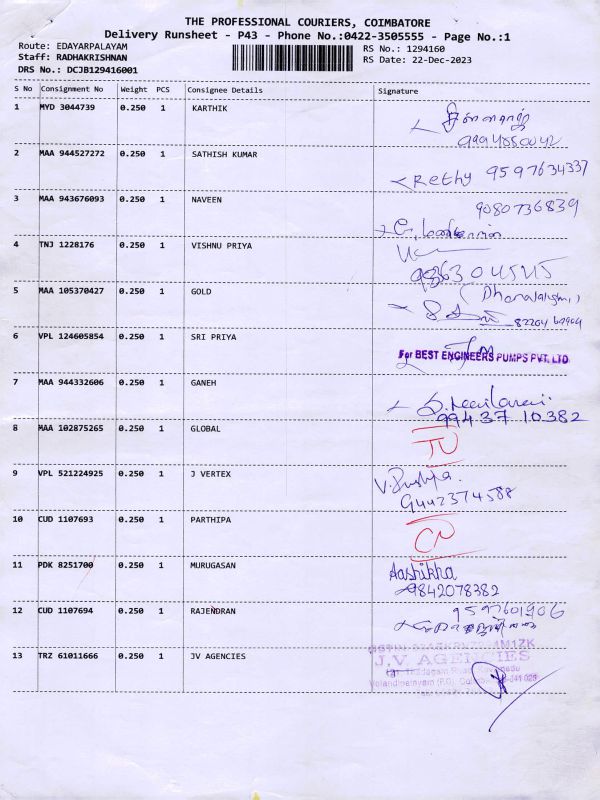 THE PROFESSIONAL COURIERS, COIMBATORE
Delivery Runsheet - P43 - Phone No.:0422-3505555 - Page No.:1
Route: EDAYARPALAYAM
RS No.: 1294160
Staff: RADHAKRISHNAN
RS Date: 22-Dec-2023
DRS No.: DCJB129416001
S No Consignment No Weight PCS Consignee Details Signature
1 MYD 3044739 0.250 1 KARTHIK
2 MAA 944527272 0.250 1 SATHISH KUMAR
Rethy 9597634337
3 MAA 943676093 0.250 1 NAVEEN
9080736839
4 TNJ 1228176 0.250 1 VISHNU PRIYA
5 MAA 105370427 0.250 1 GOLD
6 VPL 124605854 0.250 1 SRI PRIYA
For BEST ENGINEERS PUMPS PVT. LTD
7 MAA 944332606 0.250 1 GANEH
99437 10382
8 MAA 102875265 0.250 1 GLOBAL
9 VPL 521224925 0.250 1 J VERTEX
V. Pushpa.
9442374588
10 CUD 1107693 0.250 1 PARTHIPA
11 PDK 8251700 0.250 1 MURUGASAN
Aashikha
9842078382
12 CUD 1107694 0.250 1 RAJENDRAN
9597601906
13 TRZ 61011666 0.250 1 JV AGENCIES
J.V. AGENCIES